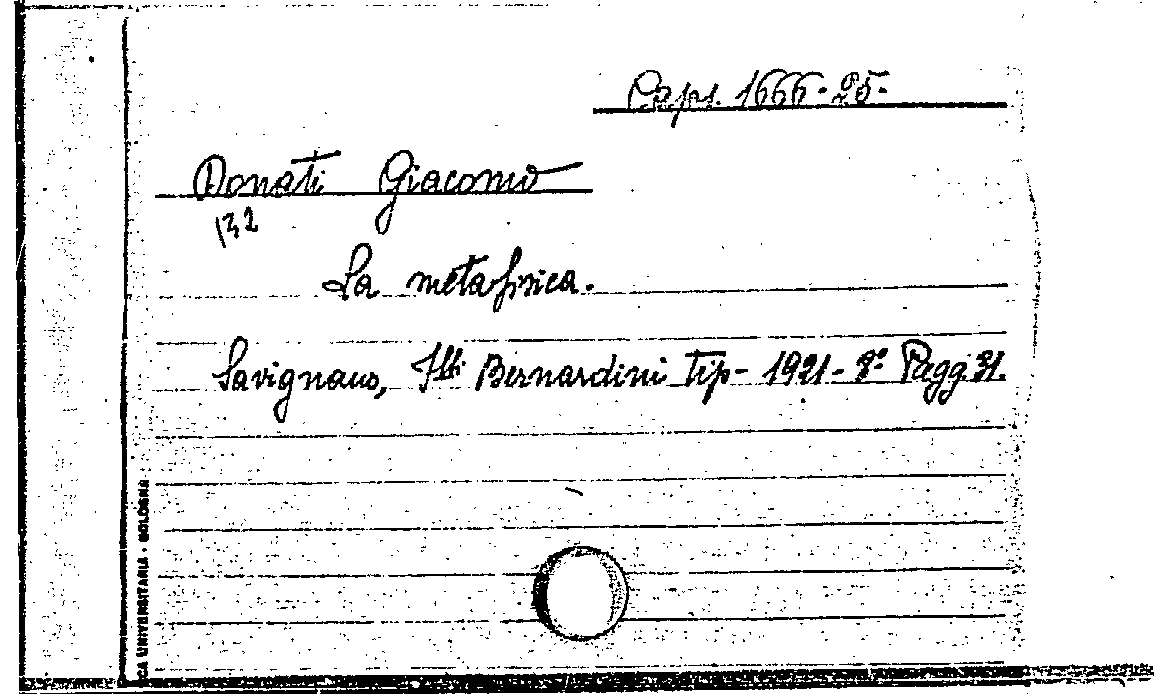 Caps. 1666-25-
Donati Giacomo
132
La metafisica.
Savignano, Flli Bernardini Tip- 1921- 8° Pagg 31.
CA UNIVERSITARIA - BOLOGNA